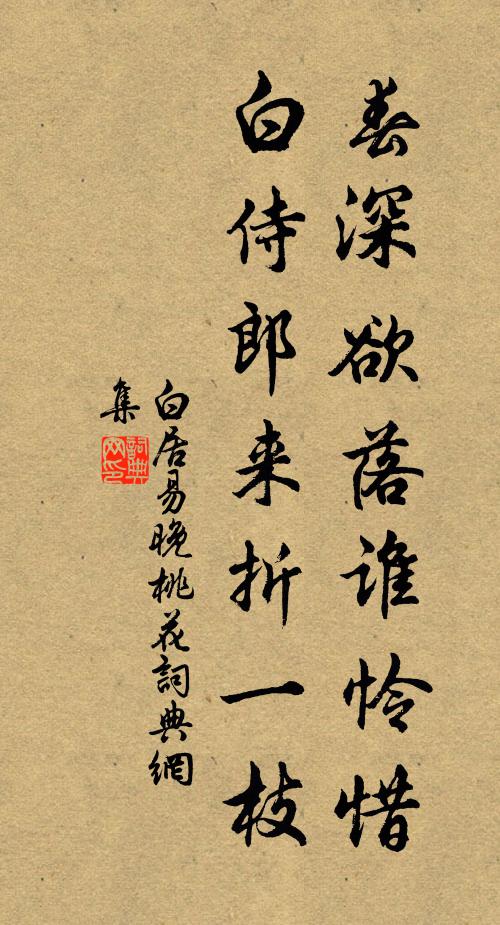 春深欲落谁怜惜
白侍郎来折一枝
白居易晚桃花詞典網
集
詞典
网印